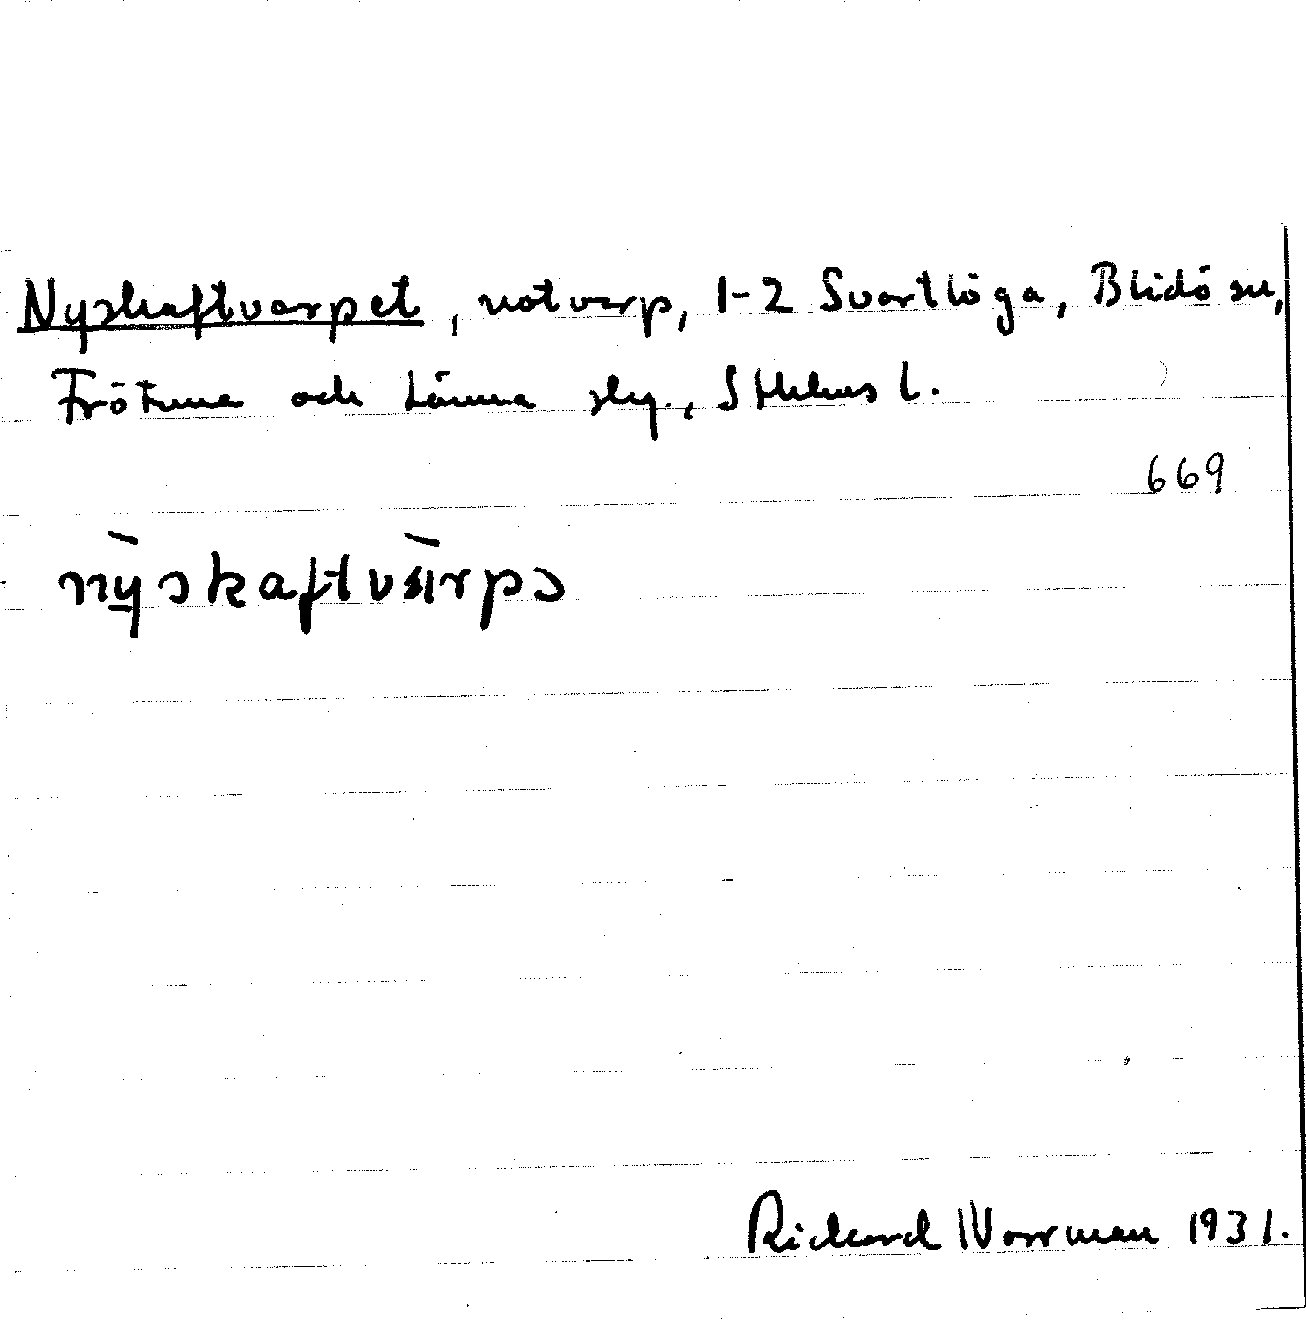 Nyskaftvarpet, notvarp, 1-2 Svartlöga, Blidö sn,
Frötuna och Länna skg., Sthlms l.
669
nỳskaftvàrpə
Rickard Norrman 1931.